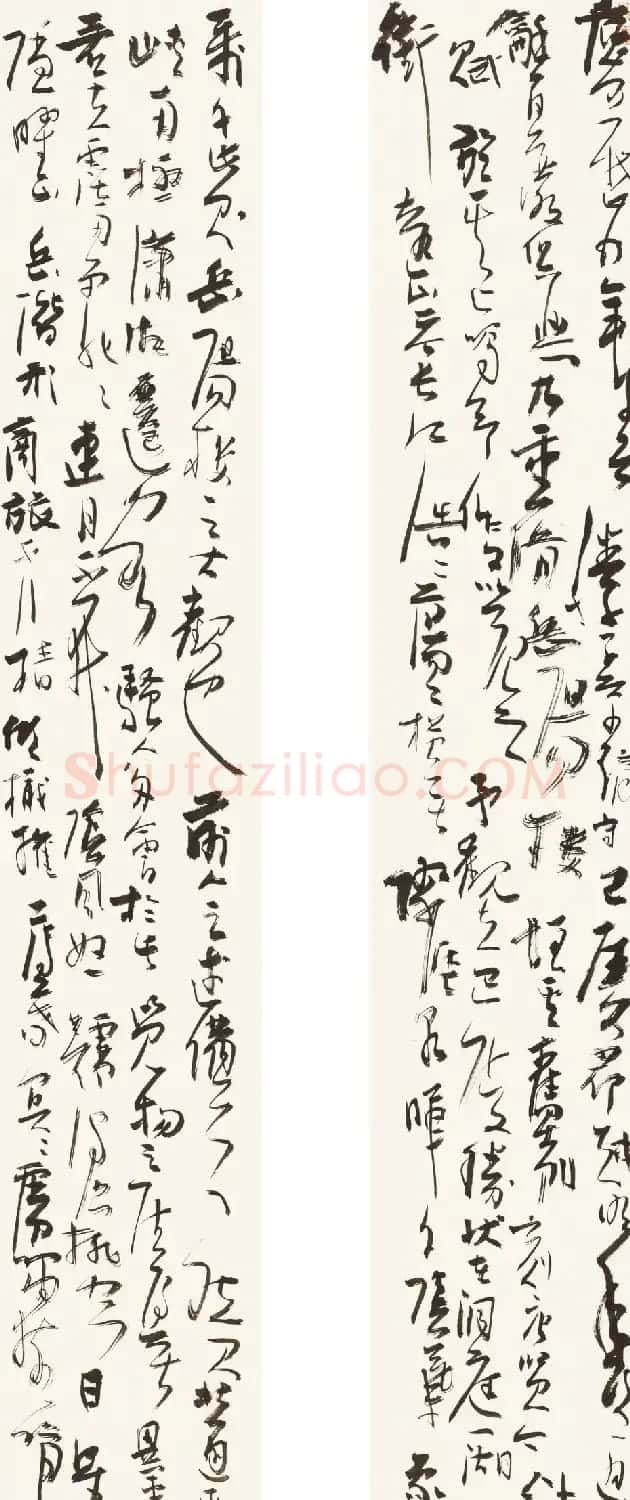 慶曆四年春滕子京謫守巴陵郡越明年政通
龢百廢俱興乃重修岳陽樓增其舊制刻唐賢今
賦於其上屬予作文以記之予觀夫巴陵勝狀在洞庭一湖
銜遠山吞長江浩浩湯湯橫無際涯朝暉夕陰氣象
萬千此則岳陽樓之大觀也前人之述備矣然則北通巫
峽南極瀟湘遷客騷人多會於此覽物之情得無異乎
若夫霪雨霏霏連月不開陰風怒號濁浪排空日星
隱曜山岳潛形商旅不行檣傾楫摧薄暮冥冥虎嘯猿啼
Shufaziliao.COM